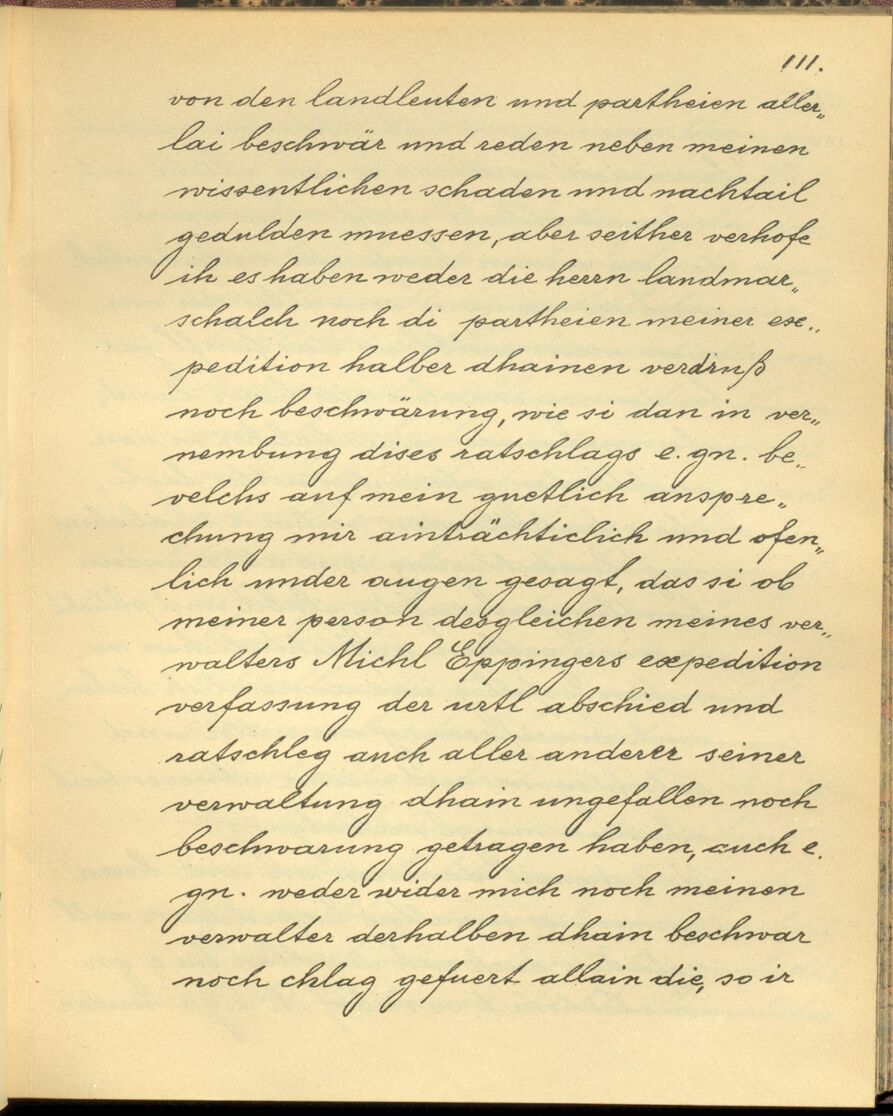 111.
von den landleuten und partheien aller„
lai beschwär und reden neben meinen
wissentlichen schaden und nachtail
gedulden muessen, aber seither verhofe
ih es haben weder die herrn landmar„
schalch noch di partheien meiner ex„
pedition halber dhainen verdruß
noch beschwärung, wie si dan in ver„
nembung dises ratschlags e. gn. be„
velchs auf mein guetlich anspre„
chung mir ainträchticlich und ofen„
lich under augen gesagt, das si ob
meiner person desgleichen meines ver„
walters Michl Eppingers expedition
verfassung der urtl abschied und
ratschleg auch aller anderer seiner
verwaltung dhain ungefallen noch
beschwarung getragen haben, auch e.
gn. weder wider mich noch meinen
verwalter derhalben dhain beschwar
noch chlag gefuert allain die, so ir